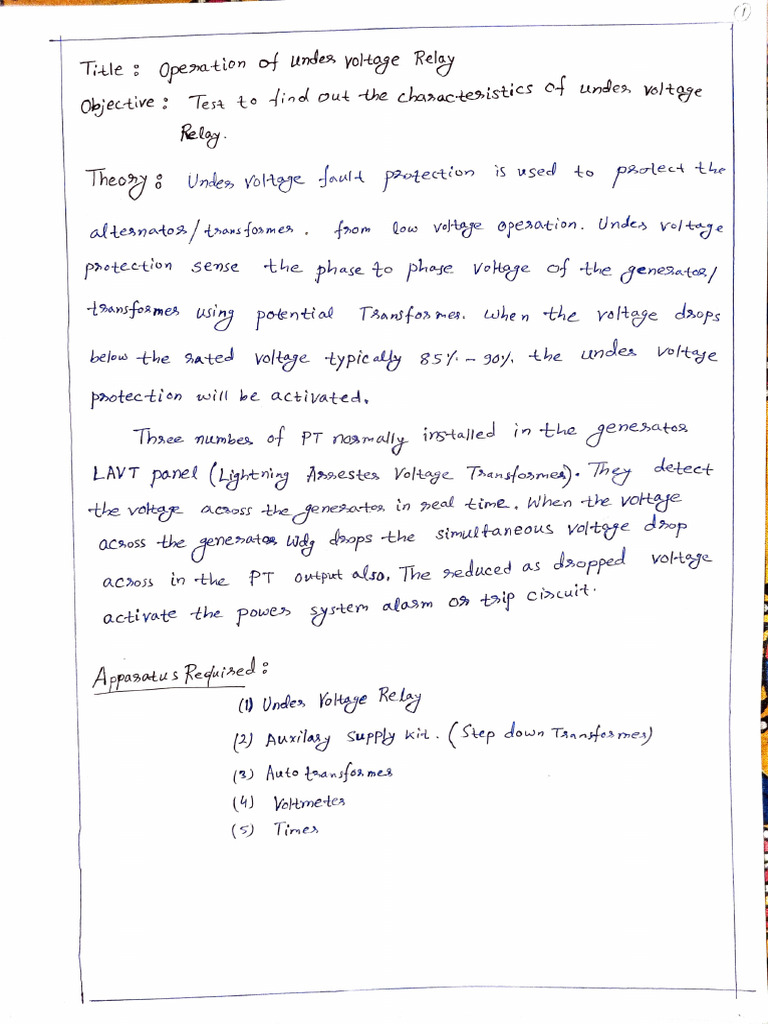 1
Title : Operation of under voltage Relay
Objective : Test to find out the characteristics of under voltage
Relay.
Theory : Under voltage fault protection is used to protect the
alternator/transformer. from low voltage operation. Under voltage
protection sense the phase to phase voltage of the generator/
transformer using potential Transformer. When the voltage drops
below the rated voltage typically 85% - 90%. the under voltage
protection will be activated.
Three number of PT normally installed in the generator
LAVT panel (Lightning Arrester Voltage Transformer). They detect
the voltage across the generator in real time. When the voltage
across the generator Wdg drops the simultaneous voltage drop
across in the PT output also. The reduced as dropped voltage
activate the power system alarm or trip circuit.
Apparatus Required :
(1) Under Voltage Relay
(2) Auxilary supply kit. (Step down Transformer)
(3) Auto transformer
(4) Voltmeter
(5) Timer